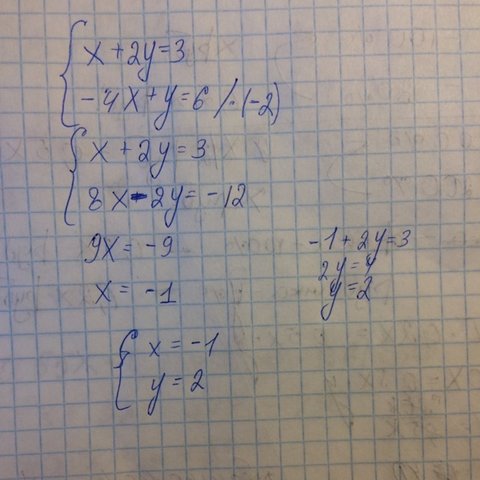 x + 2y = 3
- 4x + y = 6 / · (-2)
x + 2y = 3
8x - 2y = -12
9x = -9
x = -1
-1 + 2y = 3
2y = 4
y = 2
x = -1
y = 2